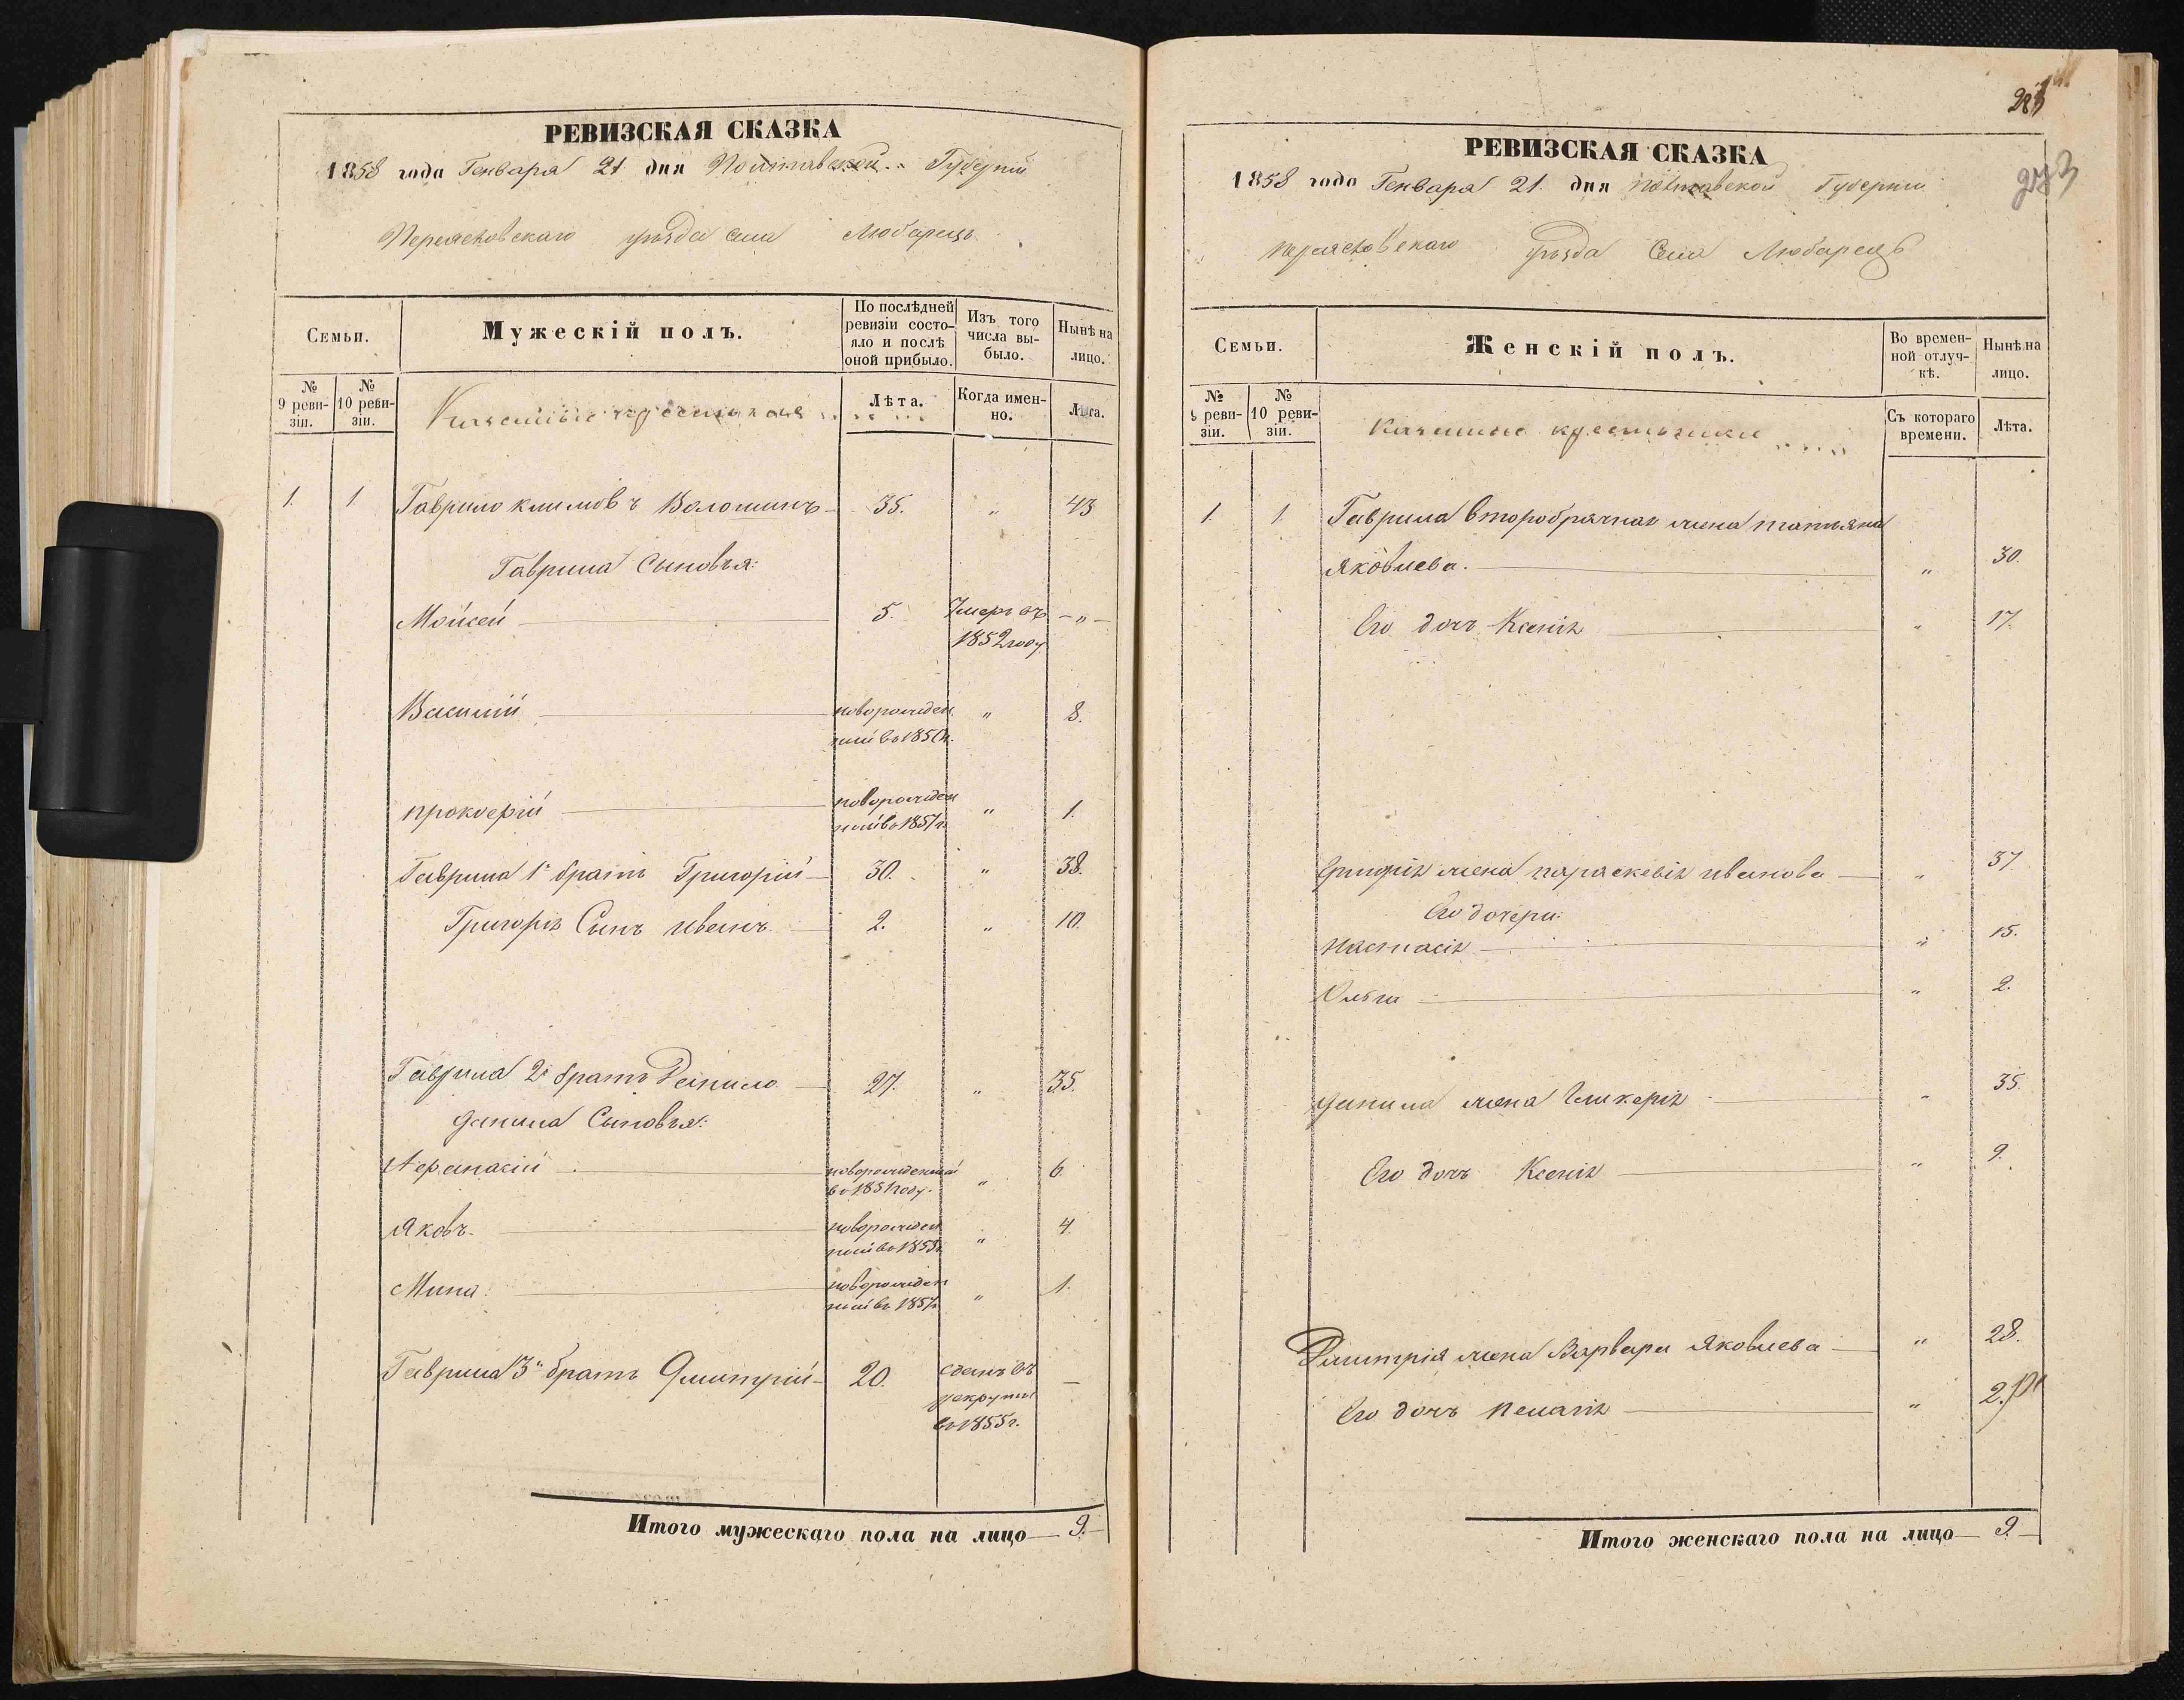 РЕВИЗСКАЯ СКАЗКА
1858 года Генваря 21 дня Полтавской Губерніи
Переясловскаго уѣзда села Любарецъ
Семьи.
Мужескій полъ.
По послѣдней ревизіи состо-
яло и послѣ
оной прибыло.
Изъ того
числа вы-
было.
Нынѣ на
лицо.
№
9 реви-
зіи.
№
10 реви-
зіи.
Казенные крестьяне
Лѣта.
Когда имен-
но.
Лѣта.
1. 1. Гаврило Климовъ Волошинъ 35. " 43
Гаврила Сыновья:
Мойсей 5. Умеръ въ 1852 году - " -
Василій новорожденный въ 1850 г. " 8.
Прокофій новорожденный въ 1857 г. " 1.
Гаврила 1й братъ Григорій 30. " 38.
Григорія Сынъ Иванъ 2. " 10.
Гаврила 2й братъ Данило 27. " 35.
Данила Сыновья:
Афанасій новорожденный въ 1851 году. " 6.
Яковъ новорожденный въ 1853 г. " 4.
Мина новорожденный въ 1857 г. " 1.
Гаврила 3й братъ Дмитрій 20. сданъ въ рекруты въ 1855 г. —
Итого мужескаго пола на лицо — 9.
273
РЕВИЗСКАЯ СКАЗКА
1858 года Генваря 21. дня Полтавской Губерніи
Переясловскаго уѣзда Села Любарецъ
Семьи.
Женскій полъ.
Во времен-
ной отлуч-
кѣ.
Нынѣ на
лицо.
№
9 реви-
зіи.
№
10 реви-
зіи.
Казенные крестьянки
Съ котораго
времени.
Лѣта.
1. 1. Гаврила второбрачная жена Татьяна
Яковлева. " 30.
Его дочь Ксенія " 17.
Григорія жена Параскевія Иванова " 37
Его дочери:
Настасія " 15.
Ольга " 2.
Данила жена Гликерія " 35
Его дочь Ксенія " 9.
Дмитрія жена Варвара Яковлева " 28.
Его дочь Пелагія " 2.
Итого женскаго пола на лицо — 9.